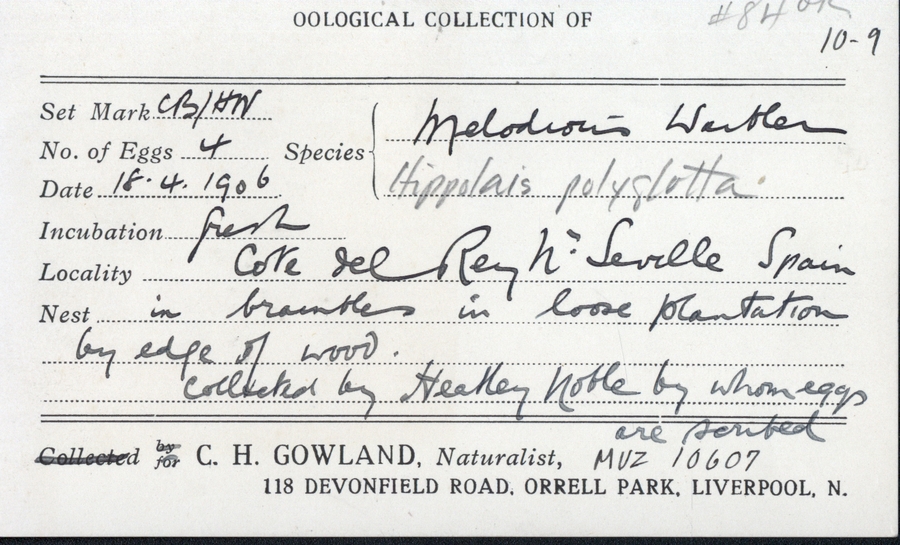 OOLOGICAL COLLECTION OF
#84 OR
10-9
Set Mark CB/HN
No. of Eggs 4 Species Melodious Warbler
Date 18.4.1906 Hippolais polyglotta
Incubation fresh
Locality Cote del Rey Nr Seville Spain
Nest in brambles in loose plantation
by edge of wood.
Collected by Heatley Noble by whom eggs
are scribed
Collected by for C. H. GOWLAND, Naturalist, MVZ 10607
118 DEVONFIELD ROAD, ORRELL PARK, LIVERPOOL, N.